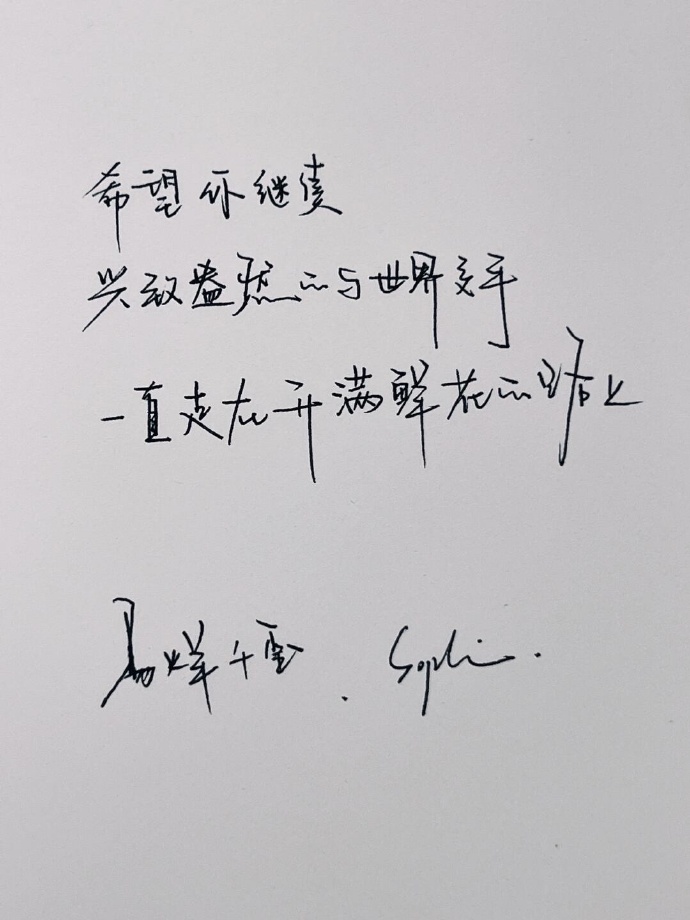 希望你继续
兴致盎然的与世界交手
一直走在开满鲜花的路上
易烊千玺. Sophie.